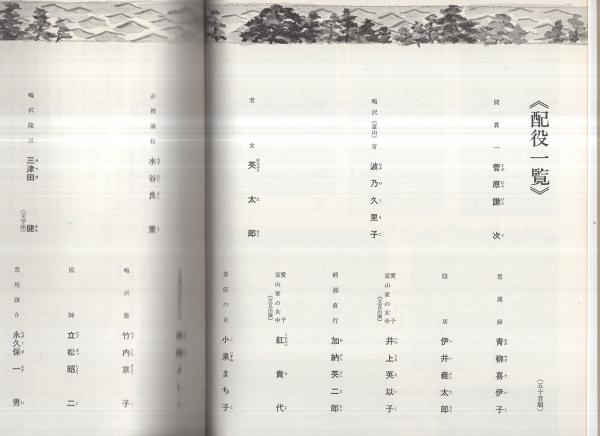 《配役一覧》
間貫一 菅原謙次
鳴沢(富山)宮 波乃久里子
老女 英太郎
赤樫満枝 水谷良重
鳴沢隆三 三津田健
(文学座)
(五十音順)
看護婦 青柳喜伊子
隠居 伊井義太郎
富山家の女中 愛子 井上英以子
(交互出演)
蒲田直行 加納英二郎
富山家の女中 愛子 紅貴代
(交互出演)
茶店の女 小泉まち子
鳴沢雅 竹内京子
医師 立松昭二
荒尾譲介 永久保一男